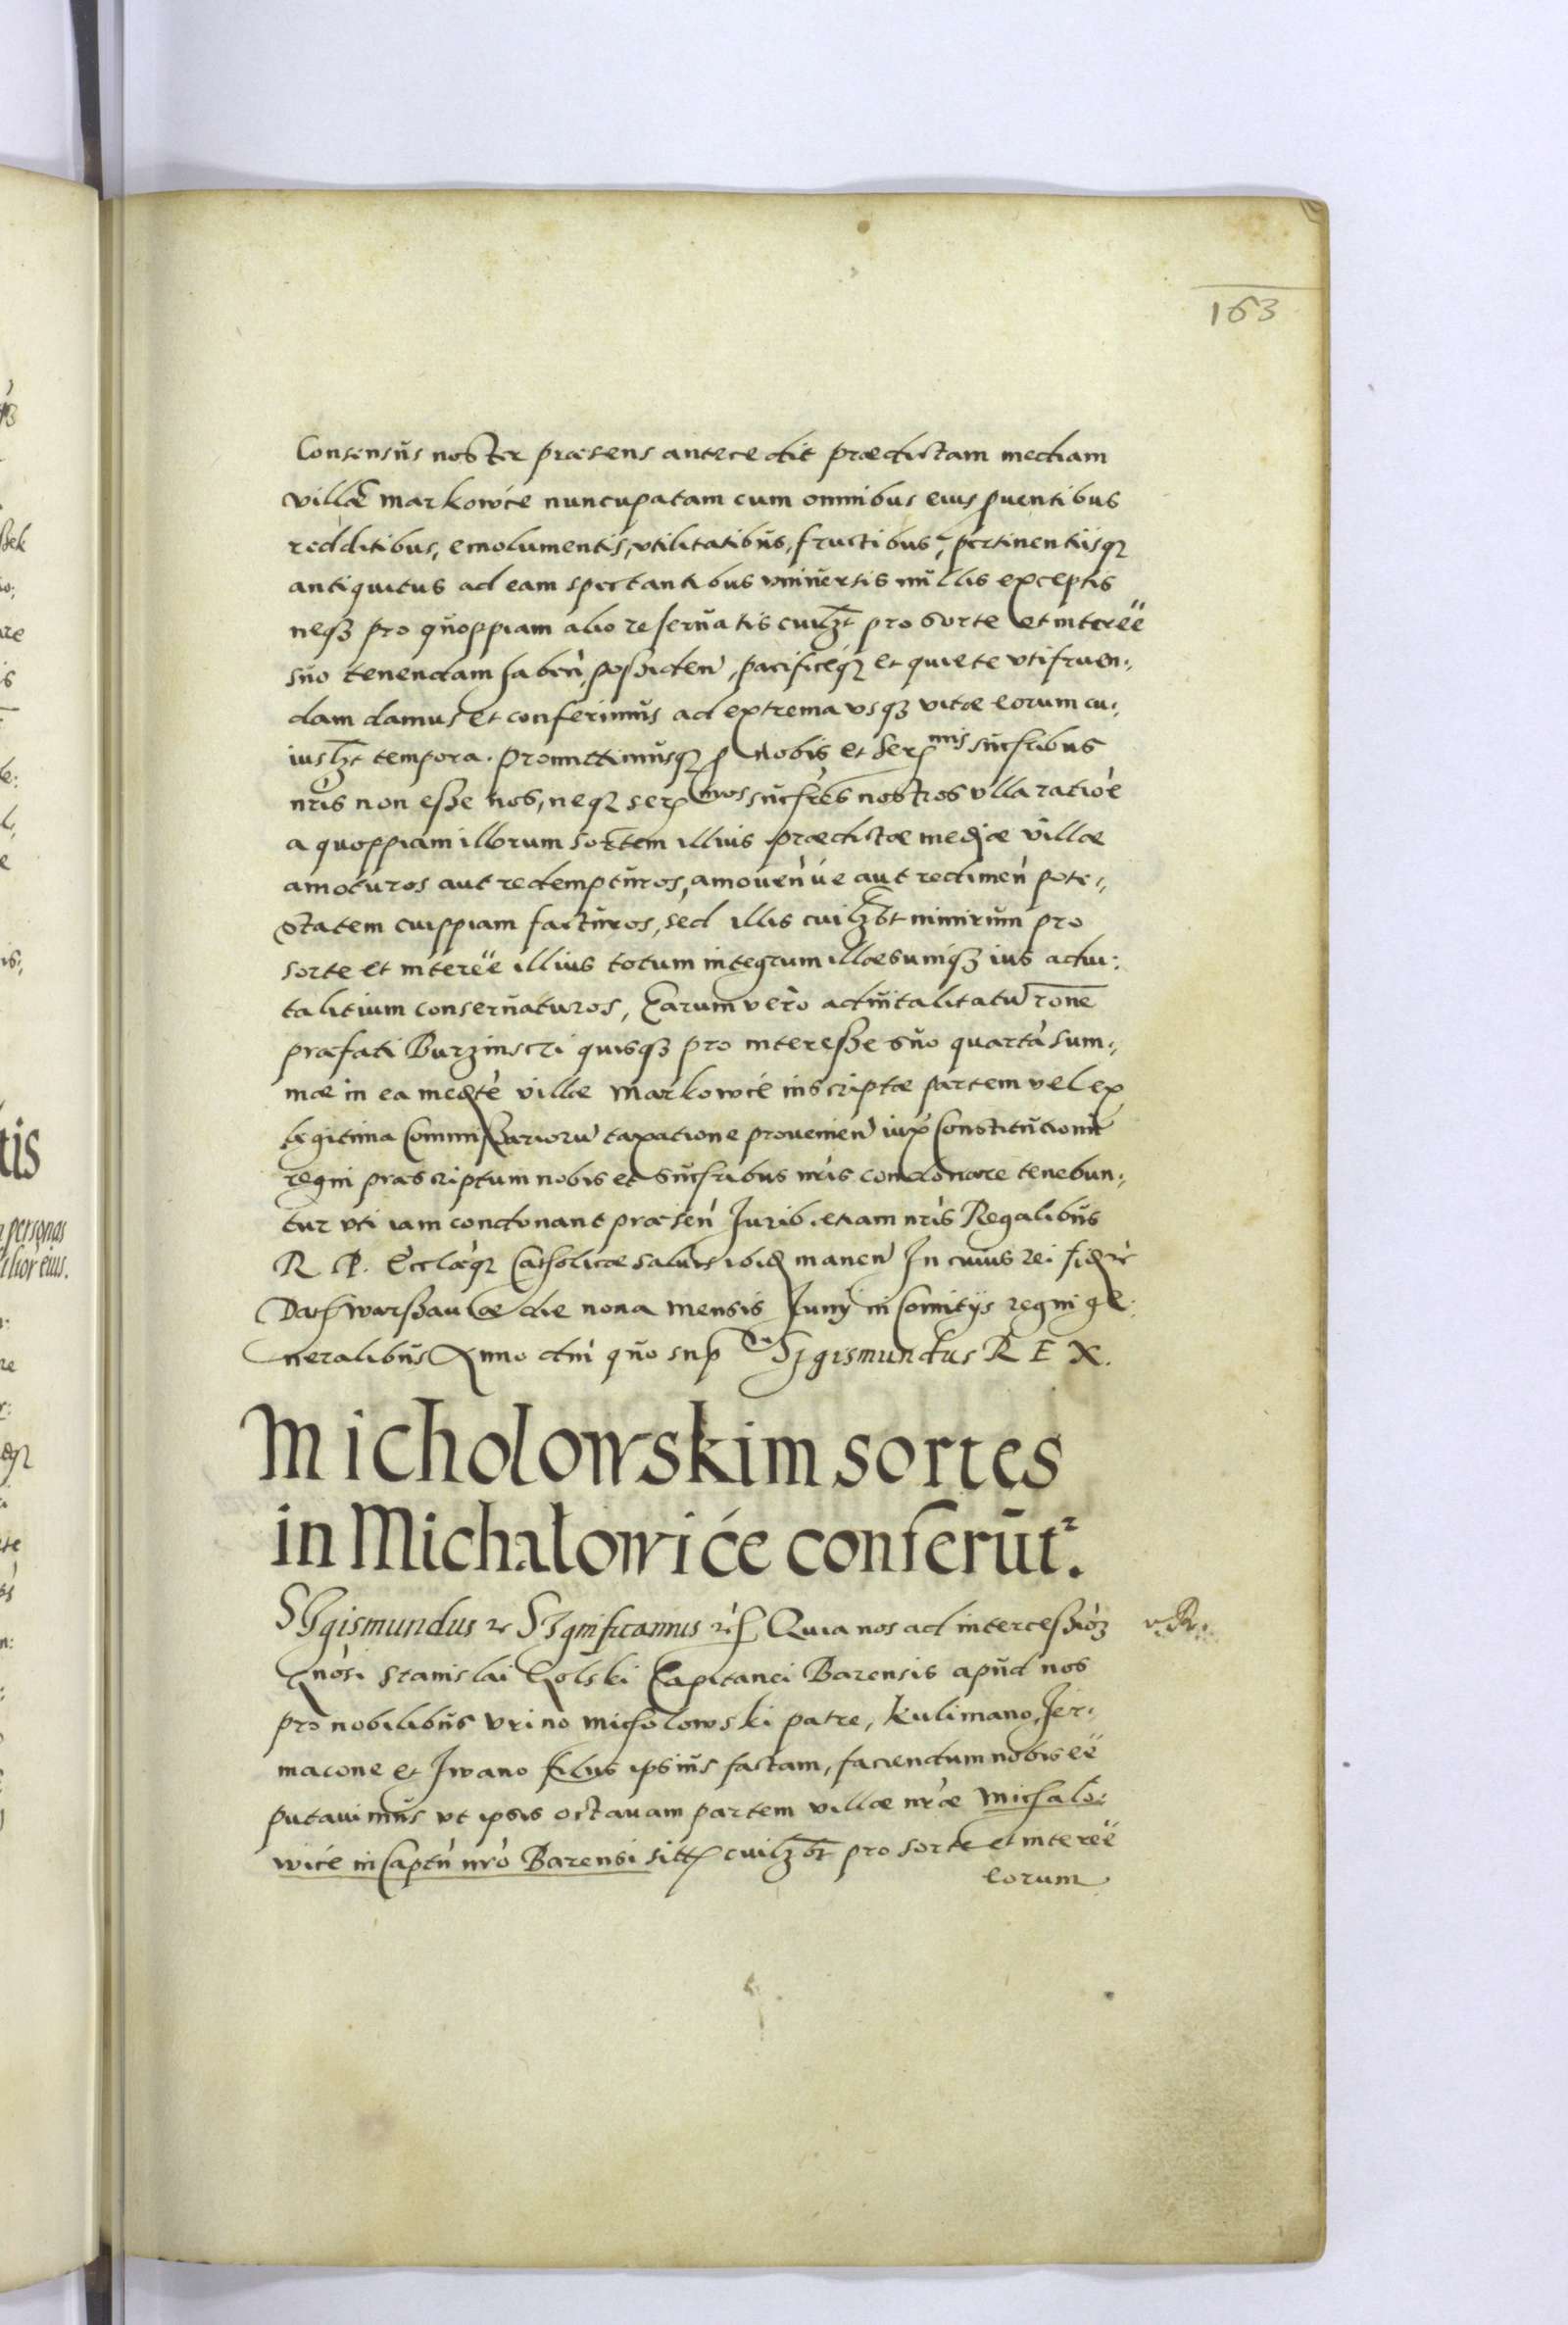 163
Consensus noster praesens antecedit praedictam mediam
villā markowice nuncupatam cum omnibus eius puentibus
redditibus, emolumentis, vtilitatibus, fructibus, pertinentiisq
antiquitus ad eam spectantibus vniuersis nullis exceptis
neqz pro quoppiam alio reseruatis cuilzt pro sorte et interēē
suo tenendam haben, possiden, pacificeqz et quiete vtifruen:
dam damus et conferimus ad extrema vsqz vitae eorum cu:
iuslzt tempora. promittimusqz p nobis et Serᵐⁱˢ sucśribus
nris non esse nos, neqz serᵐᵒˢ sucśres nostros vlla ratioe
a quoppiam illorum sortem illius praedictae mediae villae
amoturos aut redempturos, amouen ue aut redimen pote:
statem cuippiam facturos, sed illis cuilzbt nimirum pro
sorte et interēē illius totum integrum illaesumqz ius adui:
talitium conseruaturos, Earum vero aduitalitatū rone
praefati Burzinscri quisqz pro interesse suo quartā sum:
mae in ea medte villae Markowice inscriptae partem vel ex
legitima Commissariorū taxatione prouenien iux Constitutionū
regni praescriptum nobis et sucśribus nris condonare tenebun:
tur vti iam condonant praesen Jurib. etiam nris Regalibus
R. P. Eccłaeqz Catholicae saluis ibid manen In cuius rei fid rc
Dat Warssauiae die nona mensis Junij in Comitijs regni ge:
neralibus Anno dni quo sup Sigismundus REX.
Micholowskim sortes
in Michałowiće conferūtr.
SIgismundus rc SIgnificamus rc Quia nos ad intercessioz
Gnosi Stanislai Golski Capitanei Barensis apud nos
pro nobilibus Vrino Micholowski patre, Kulimano, Jer:
macone et Iwano filus ipsius factam, faciendum nobis ēē
putauimus vt ipsis octauam partem villae nrae Michalo:
wice in Captū nro Barensi sitt cuilzbt pro sorte et interēē
eorum